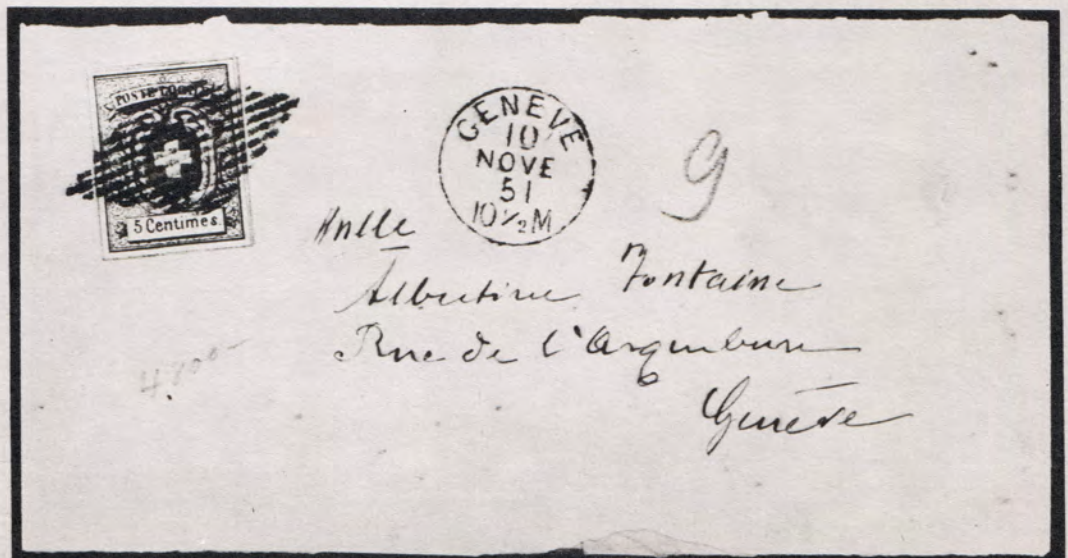 POSTE LOCALE
5 Centimes.
GENEVE
10
NOVE
51
10½M
9
Mlle
Albertine Fontaine
Rue de l'Arquebuse
Genève
4800-